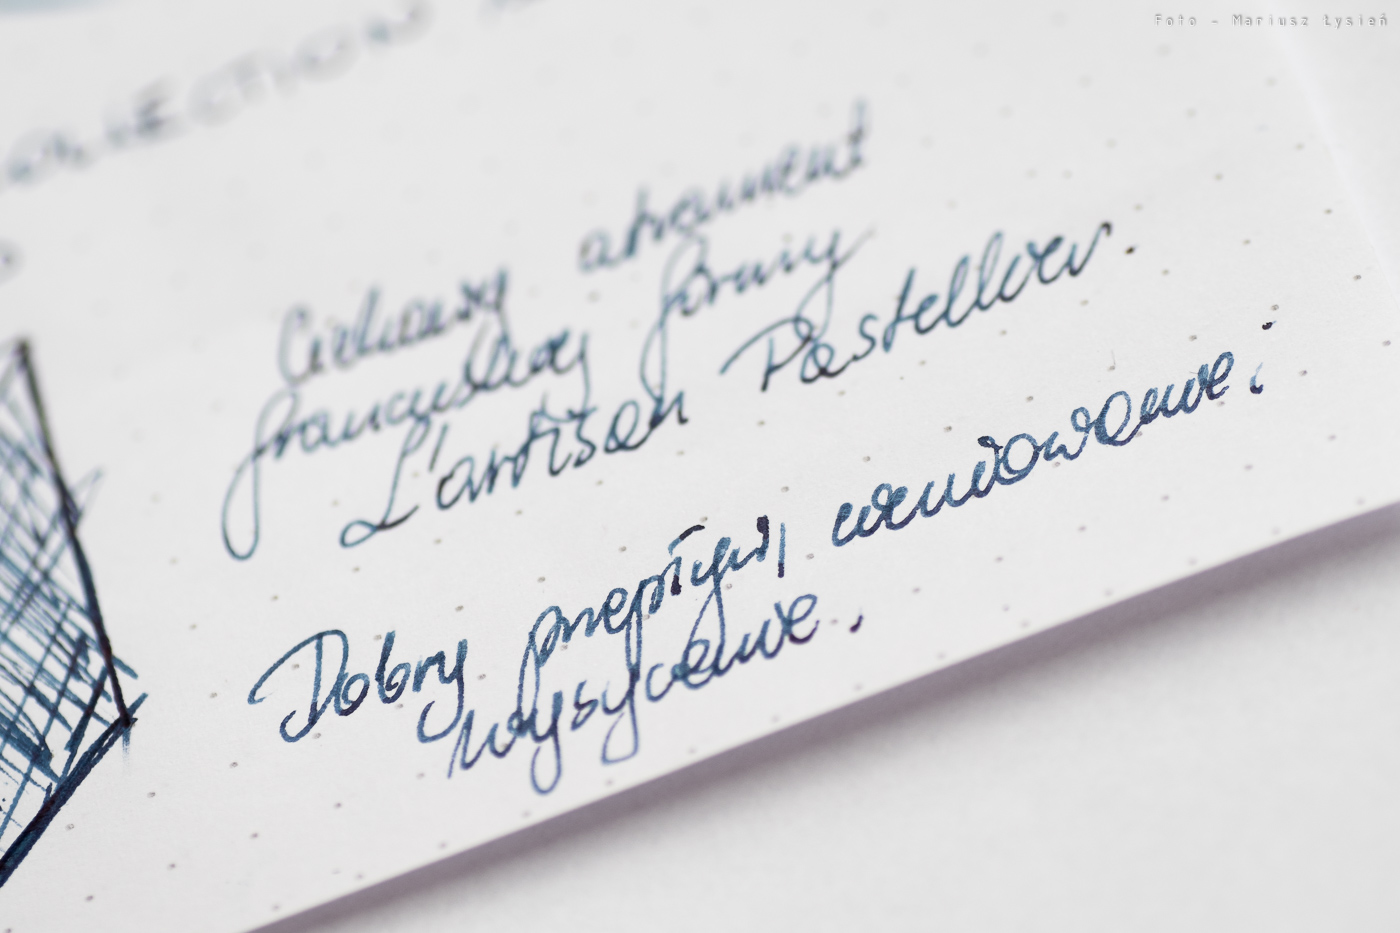 Foto - Mariusz Łysień
Ciekawy atrament
francuskiej firmy
L'artisan Pastellier.
Dobry przepływ, cieniowanie i
wysycenie.